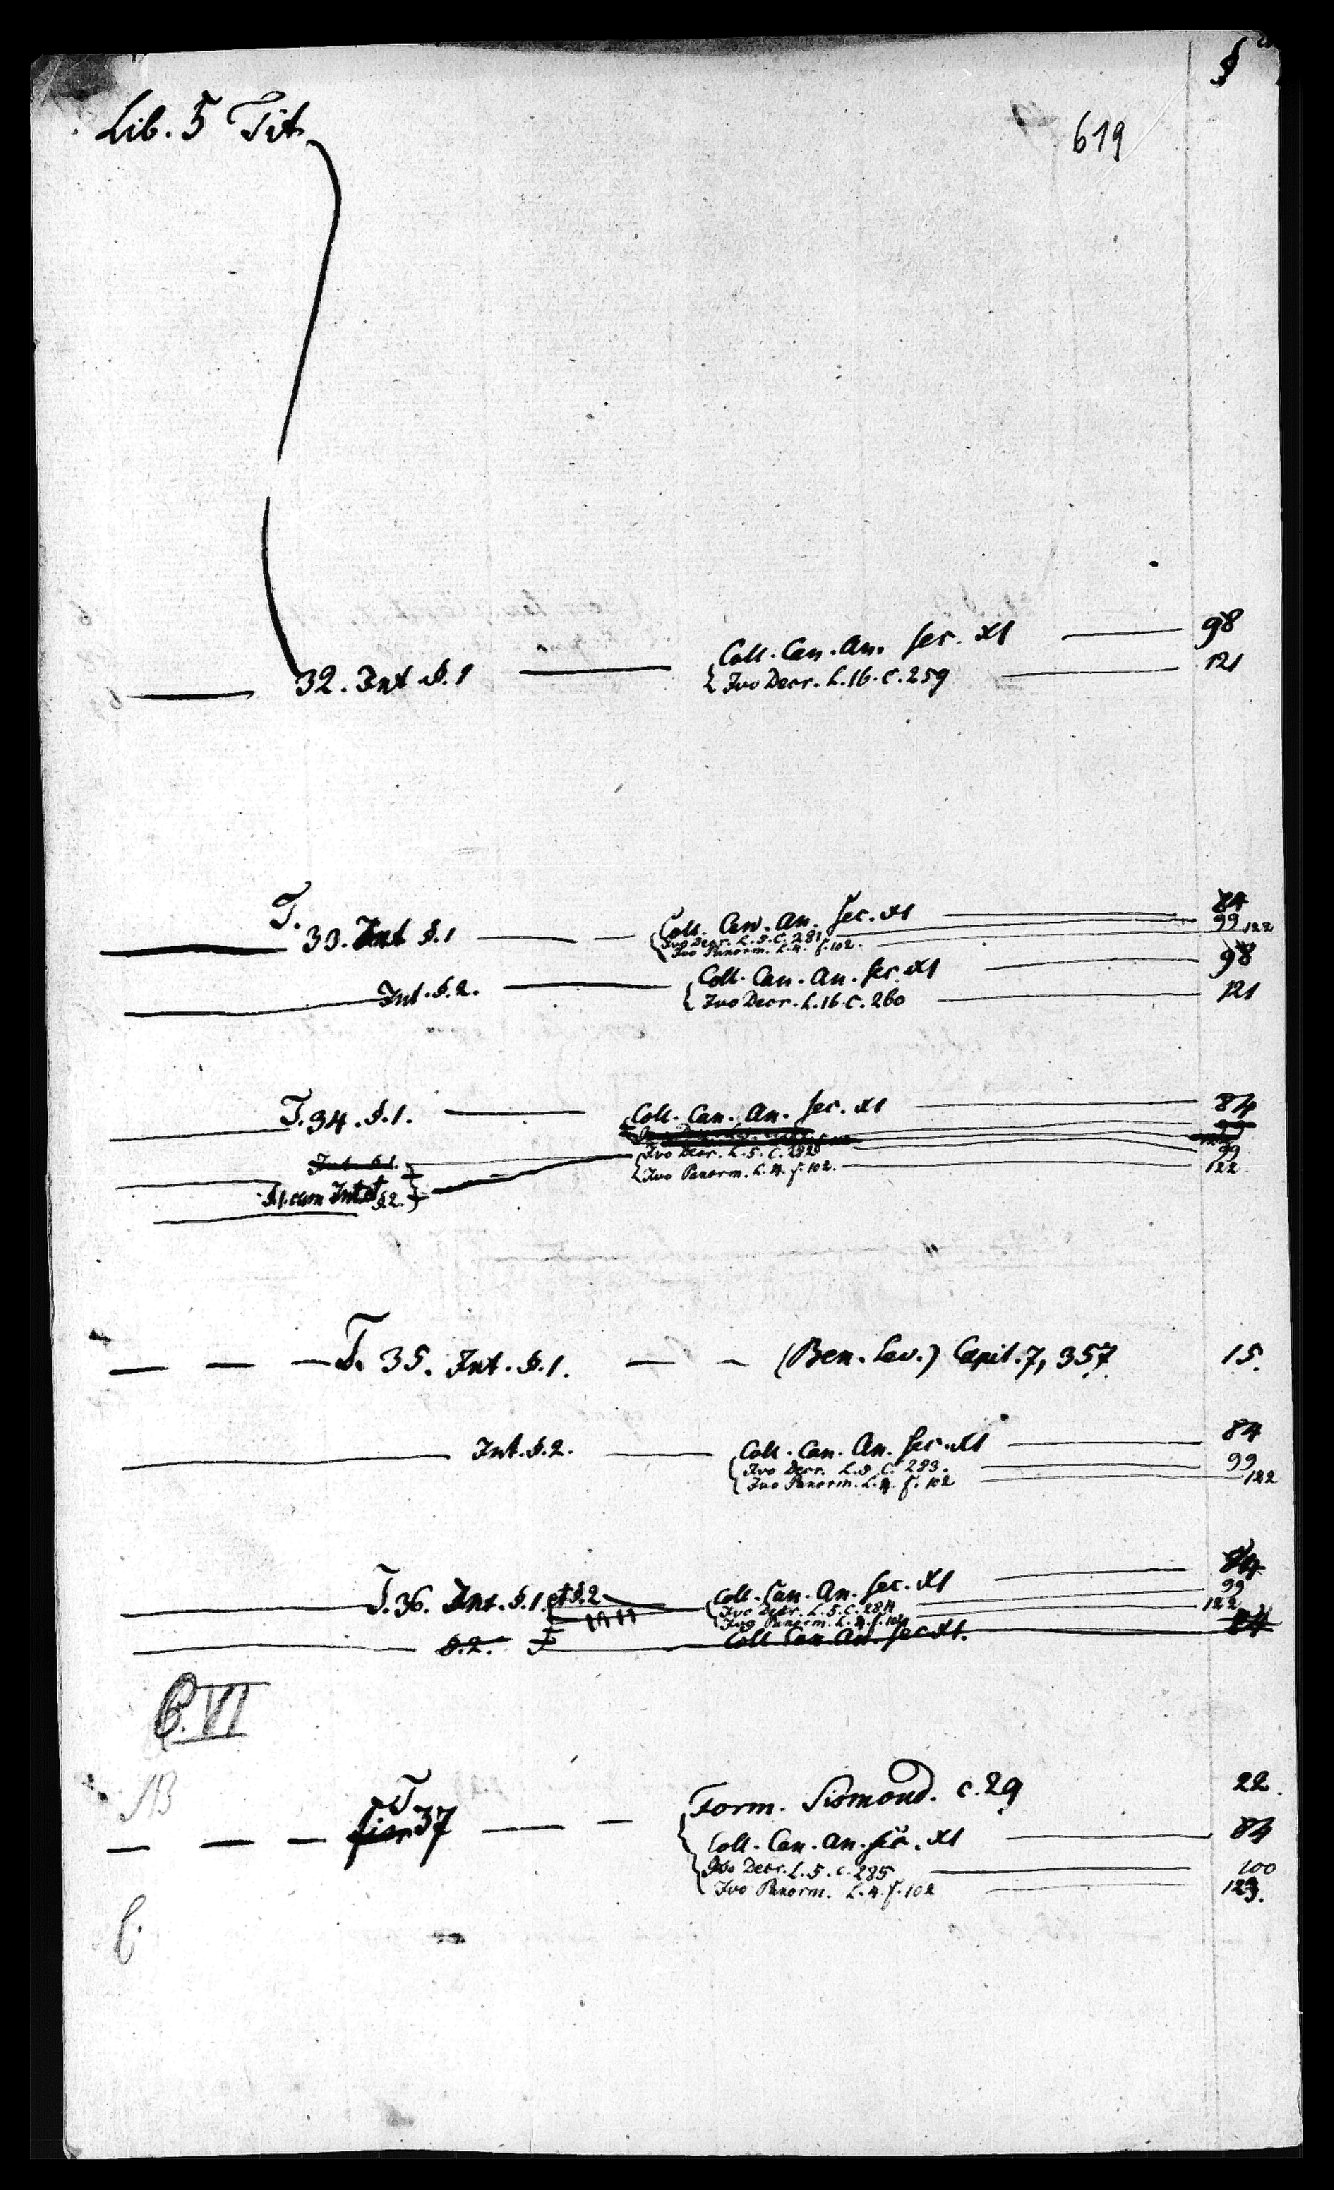 §
Lib. 5 Tit.
619
32. Int. §. 1 — Coll. Can. An. sec. XI — 98
Ivo Decr. L. 16. C. 259 — 121
T. 33. Int. §. 1 — — Coll. Can. An. sec. XI — 84
Ivo Decr. L. 5. C. 281 — 99
Ivo Panorm. L. 4. f. 102. — 122
Int. §. 2. — Coll. Can. An. sec. XI — 98
Ivo Decr. L. 16. C. 260 — 121
T. 34. §. 1. — Coll. Can. An. sec. XI — 84
Int. §. 1.
Ivo Decr. L. 5. C. 282 — 99
§. 1. cum Int. et §. 2. Ivo Panorm. L. 4. f. 102. — 122
— — — T. 35. Int. §. 1. — — (Ben. Lev.) Capit. 7, 357 15.
Int. §. 2. — Coll. Can. An. sec. XI — 84
Ivo Decr. L. 5. C. 283. — 99
Ivo Panorm. L. 4. f. 102 — 122
T. 36. Int. §. 1. et §. 2 — Coll. Can. An. sec. XI — 84
Ivo Decr. L. 5. C. 284 — 99
Ivo Panorm. L. 4. f. 102 — 122
§. 2. — Coll. Can. An. sec. XI. — 84
C. VI
NB
— — — T. 37 — — Form. Sirmond. c. 29 22.
Coll. Can. An. sec. XI — 84
Ivo Decr. L. 5. c. 285 — 100
Ivo Panorm. L. 4. f. 102 — 123.